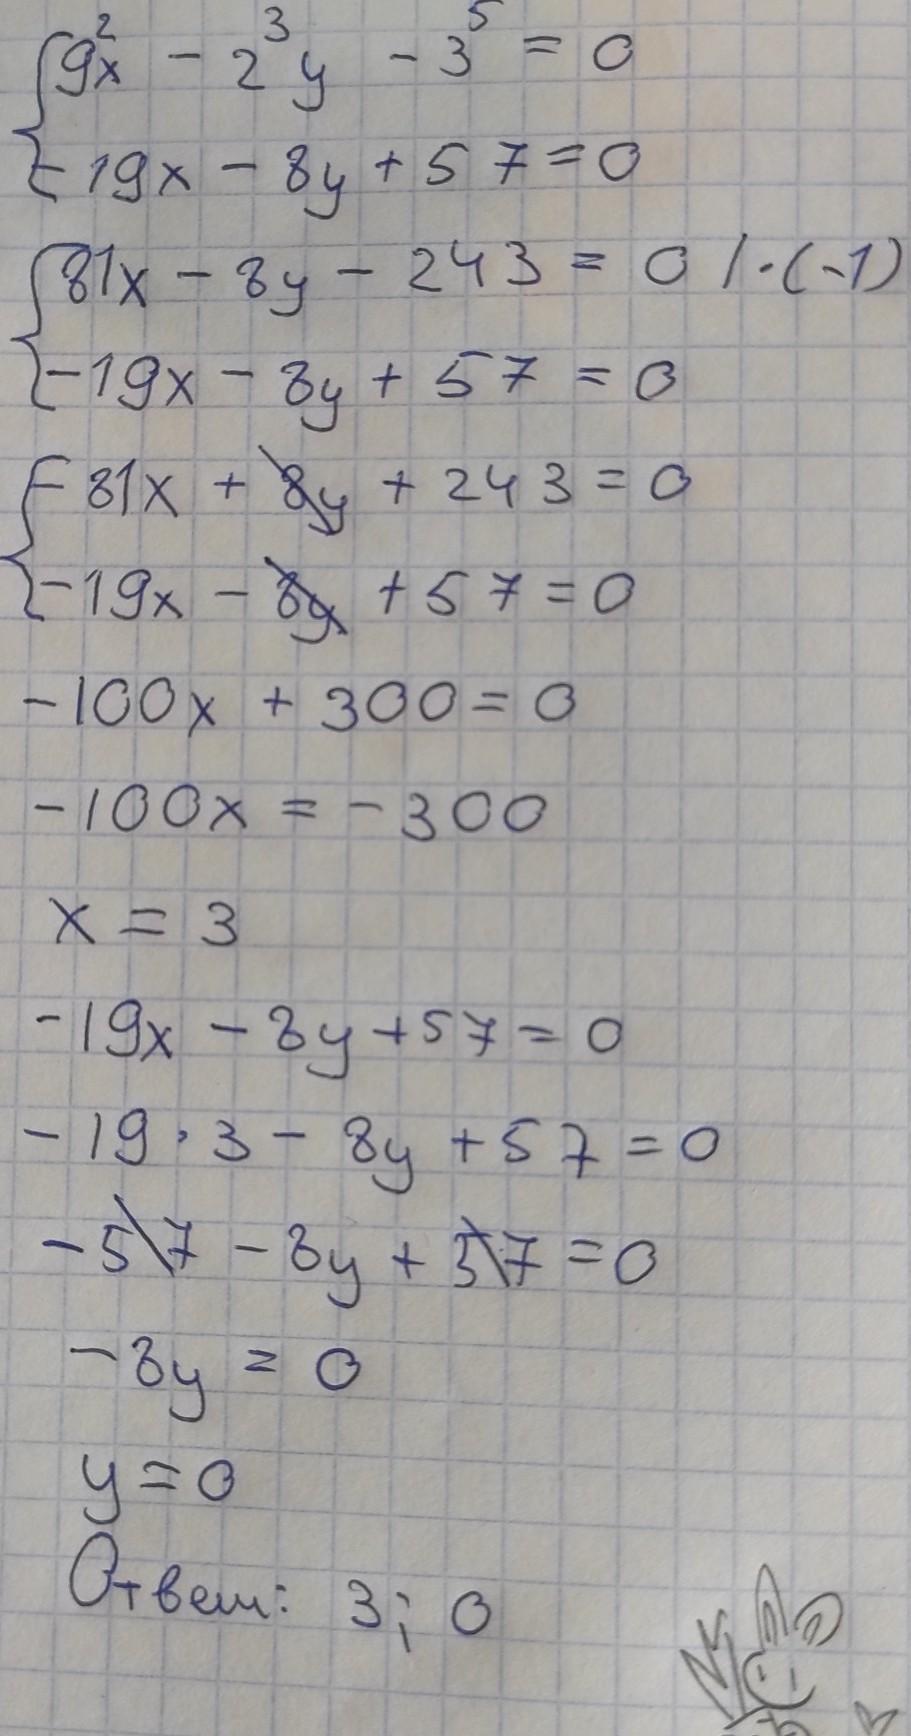 9²x - 2³y - 3⁵ = 0
-19x - 8y + 57 = 0
81x - 8y - 243 = 0 | · (-1)
-19x - 8y + 57 = 0
-81x + 8y + 243 = 0
-19x - 8y + 57 = 0
-100x + 300 = 0
-100x = -300
x = 3
-19x - 8y + 57 = 0
-19 · 3 - 8y + 57 = 0
-57 - 8y + 57 = 0
-8y = 0
y = 0
Ответ: 3; 0